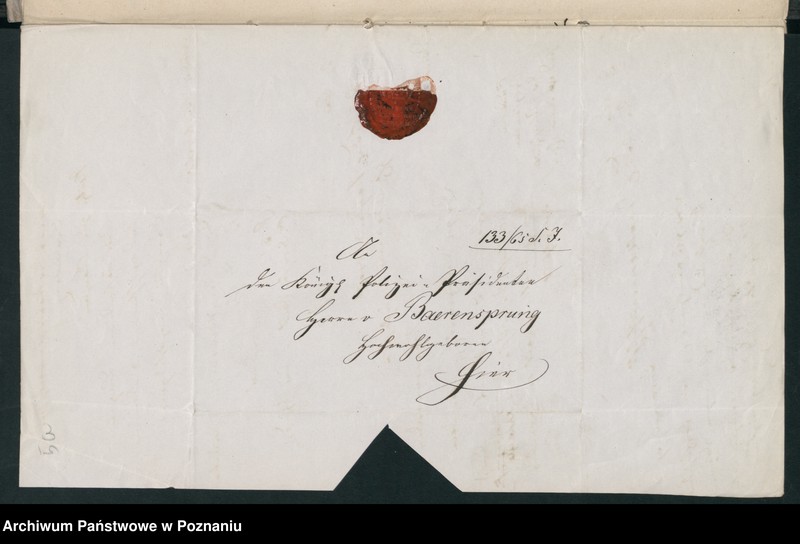 133/65 d. J.
An
den Königl Polizei-Präsidenten
Herrn v Baerensprung
Hochwohlgeboren
Hier
50
Archiwum Państwowe w Poznaniu